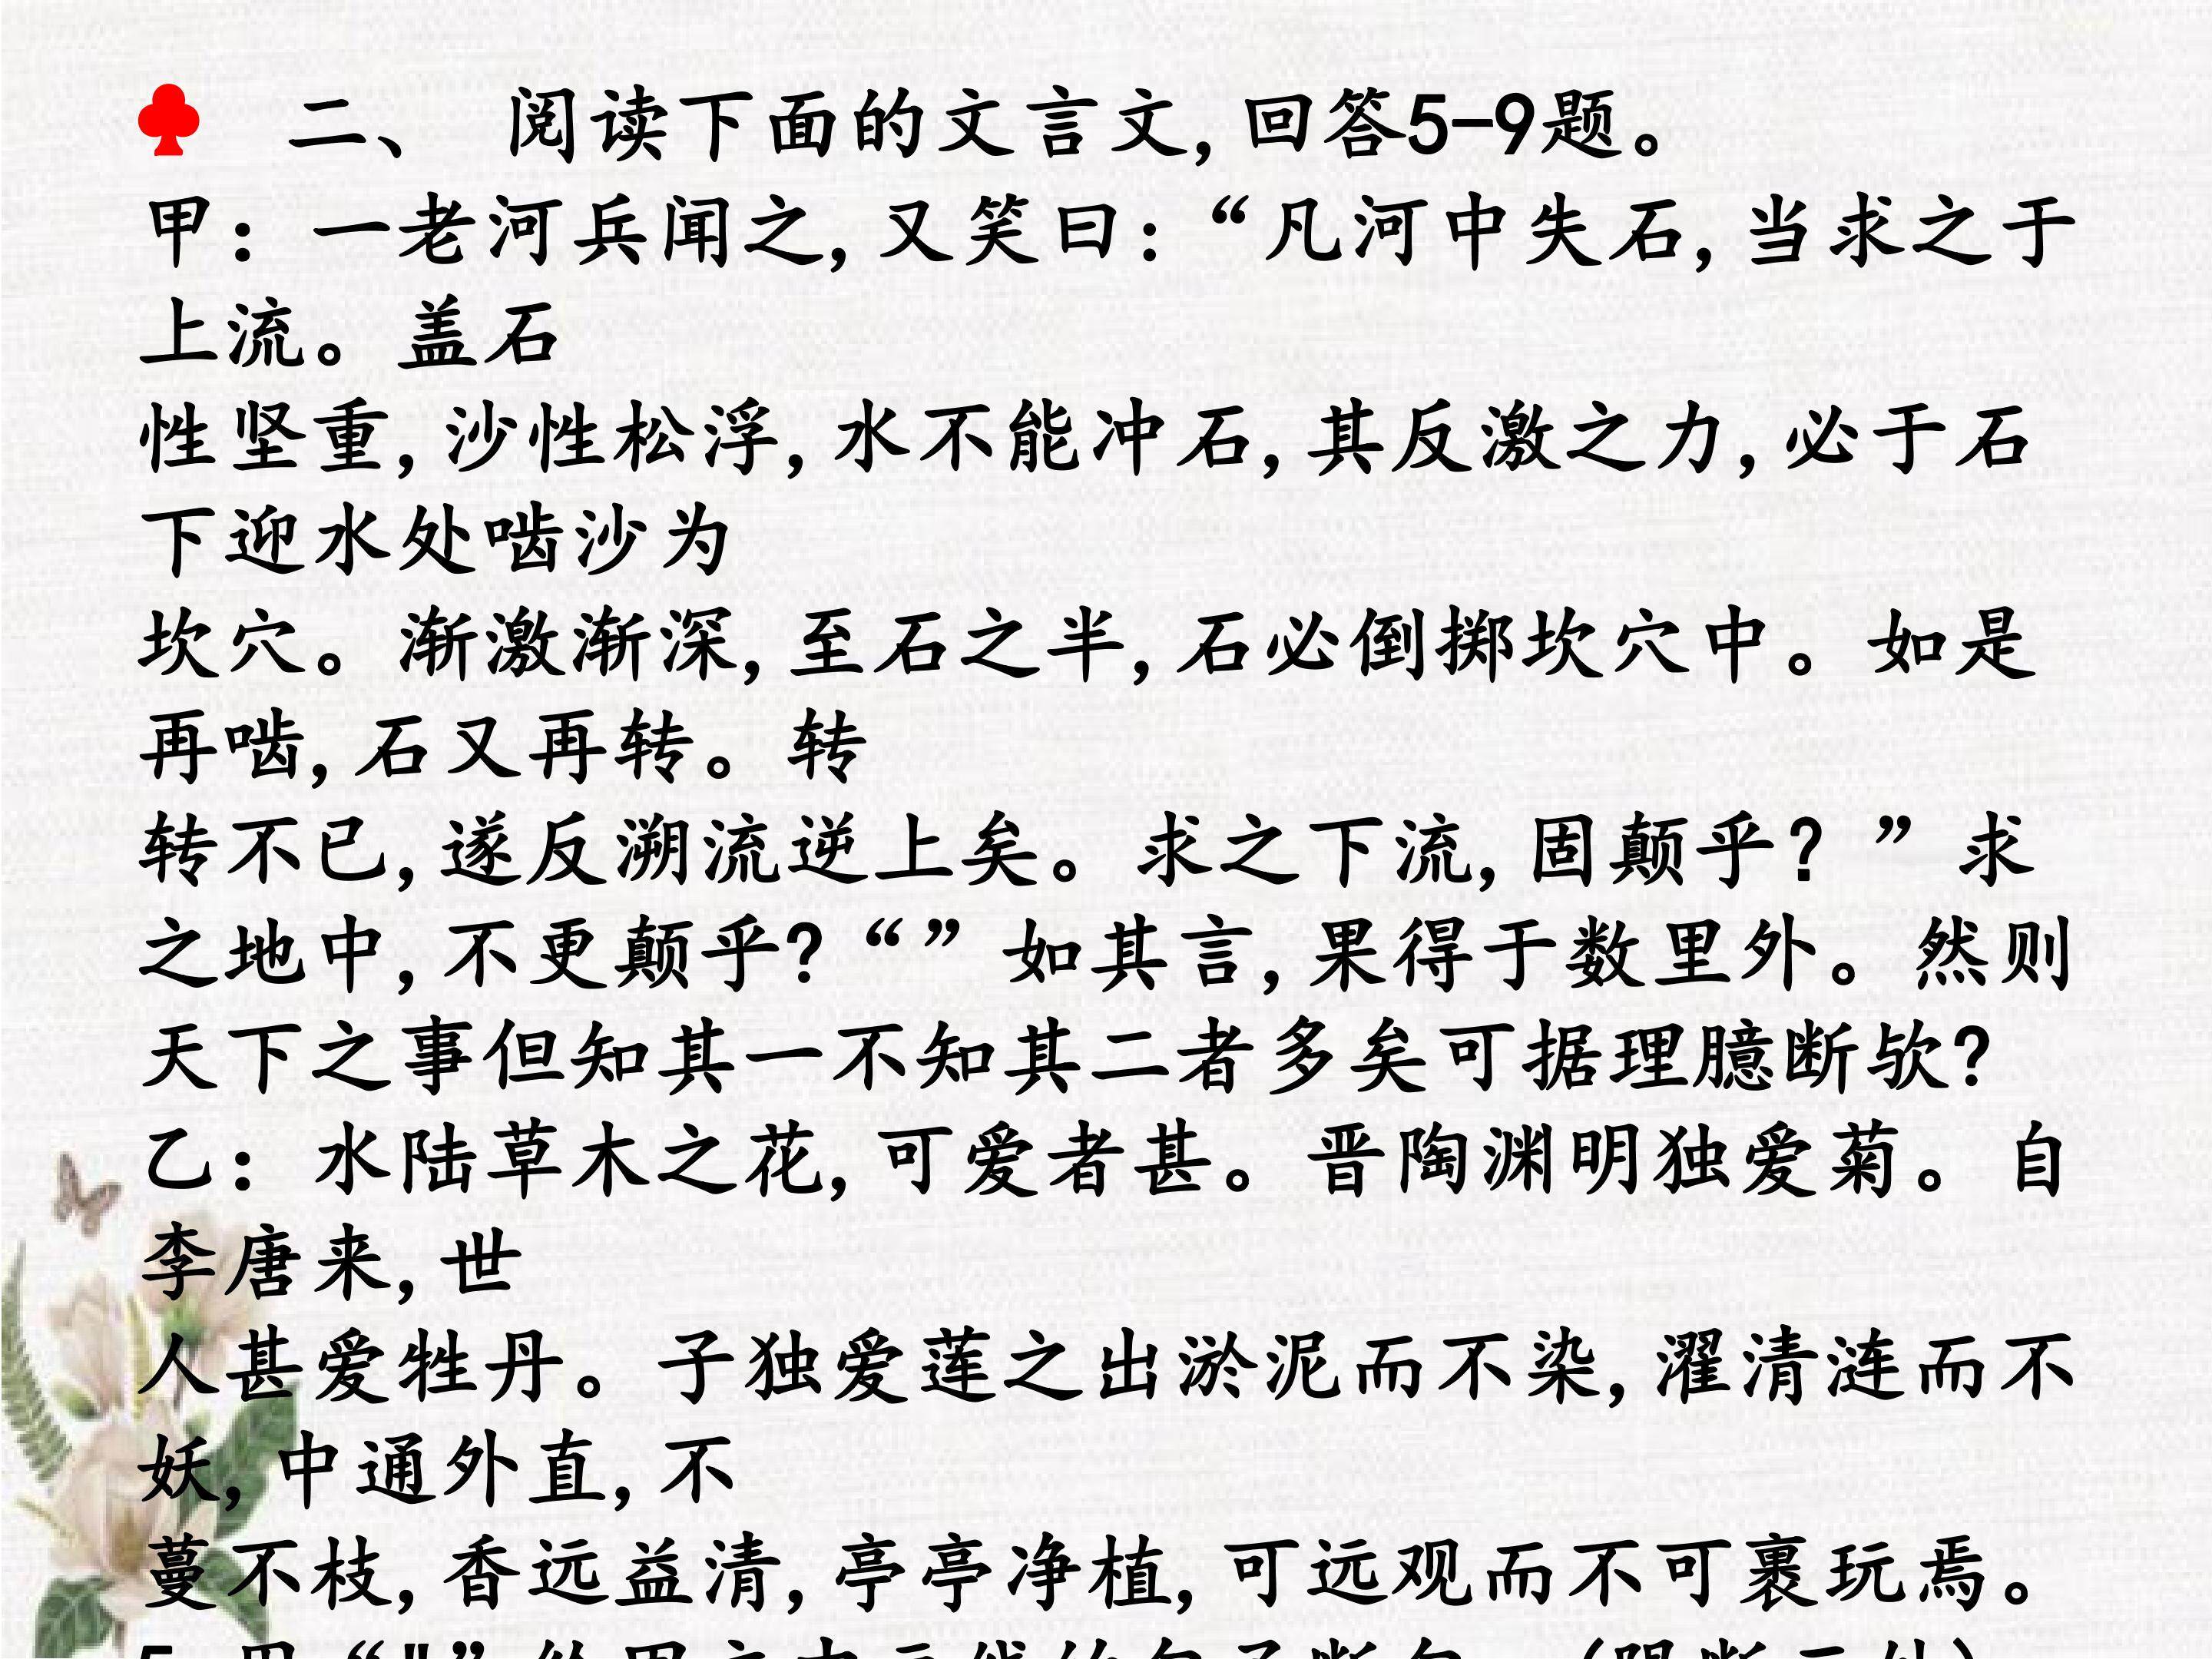 ♣ 二、 阅读下面的文言文,回答5-9题。
甲：一老河兵闻之,又笑曰:“凡河中失石,当求之于
上流。盖石
性坚重,沙性松浮,水不能冲石,其反激之力,必于石
下迎水处啮沙为
坎穴。渐激渐深,至石之半,石必倒掷坎穴中。如是
再啮,石又再转。转
转不已,遂反溯流逆上矣。求之下流,固颠乎？”求
之地中,不更颠乎?“”如其言,果得于数里外。然则
天下之事但知其一不知其二者多矣可据理臆断欤?
乙：水陆草木之花,可爱者甚。晋陶渊明独爱菊。自
李唐来,世
人甚爱牲丹。子独爱莲之出淤泥而不染,濯清涟而不
妖,中通外直,不
蔓不枝,香远益清,亭亭净植,可远观而不可裹玩焉。